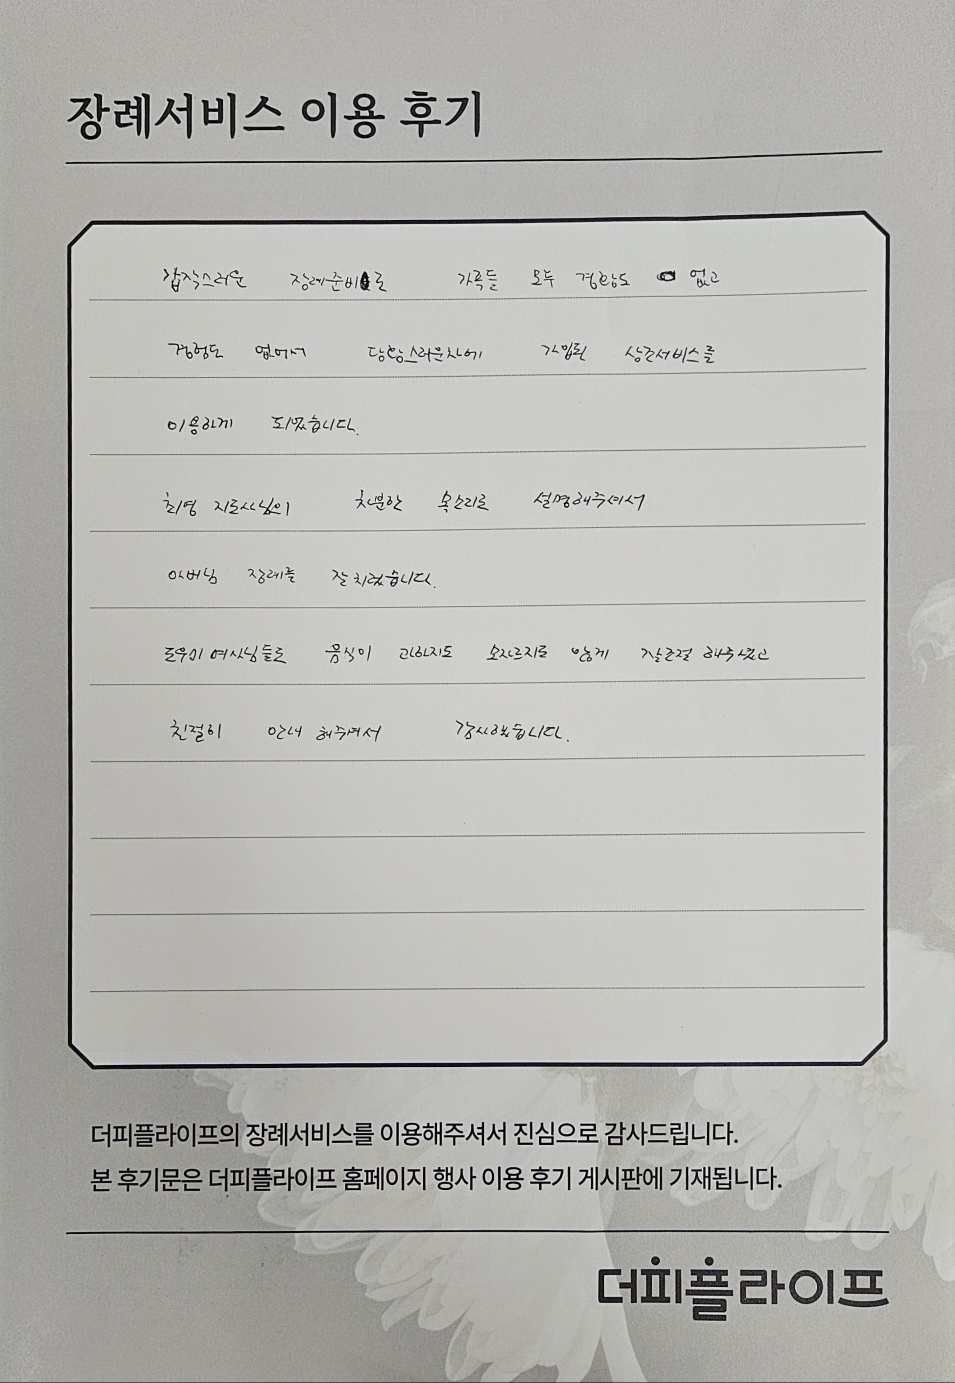 장례서비스 이용 후기
갑작스러운 장례준비로 가족들 모두 경황도 없고
경험도 없어서 당황스러운차에 가입된 상조서비스를
이용하게 되었습니다.
최영 지도사님의 차분한 목소리로 설명해주셔서
아버님 장례를 잘 치렀습니다.
도우미 여사님들도 음식이 과하지도 모자르지도 않게 잘조절 해주셨고
친절히 안내 해주셔서 감사했습니다.
더피플라이프의 장례서비스를 이용해주셔서 진심으로 감사드립니다.
본 후기문은 더피플라이프 홈페이지 행사 이용 후기 게시판에 기재됩니다.
더피플라이프